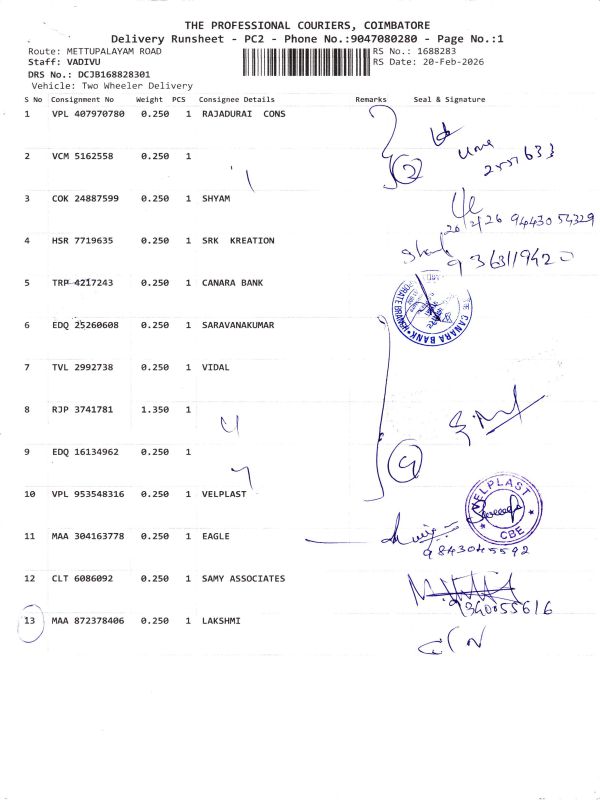 THE PROFESSIONAL COURIERS, COIMBATORE
Delivery Runsheet - PC2 - Phone No.:9047080280 - Page No.:1
Route: METTUPALAYAM ROAD RS No.: 1688283
Staff: VADIVU RS Date: 20-Feb-2026
DRS No.: DCJB168828301
Vehicle: Two Wheeler Delivery
S No Consignment No Weight PCS Consignee Details Remarks Seal & Signature
1 VPL 407970780 0.250 1 RAJADURAI CONS
2 VCM 5162558 0.250 1
2
3 COK 24887599 0.250 1 SHYAM
20/2/26 9443054329
4 HSR 7719635 0.250 1 SRK KREATION
9363119420
5 TRP 4217243 0.250 1 CANARA BANK
CANARA BANK
6 EDQ 25260608 0.250 1 SARAVANAKUMAR
7 TVL 2992738 0.250 1 VIDAL
8 RJP 3741781 1.350 1
9 EDQ 16134962 0.250 1
10 VPL 953548316 0.250 1 VELPLAST
VELPLAST
CBE
11 MAA 304163778 0.250 1 EAGLE
9843045592
12 CLT 6086092 0.250 1 SAMY ASSOCIATES
9340055616
13 MAA 872378406 0.250 1 LAKSHMI